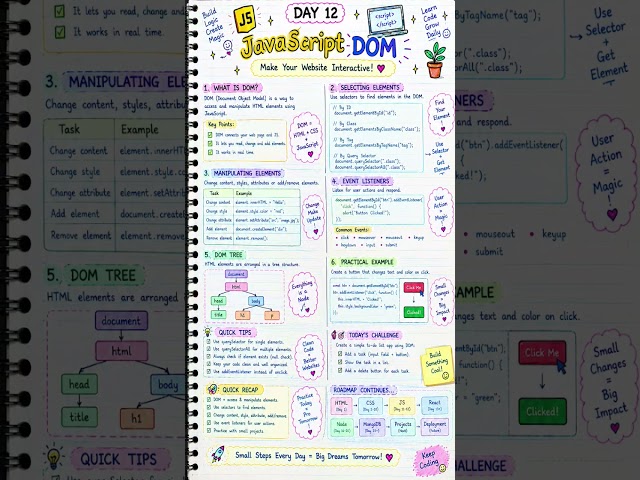 Build
Logic
Create
Magic
JS
DAY 12
<script>
</script>
Learn
Code
Grow
Daily
JavaScript DOM
Make Your Website Interactive!
1. WHAT IS DOM?
DOM (Document Object Model) is a way to
access and manipulate HTML elements using
JavaScript.
Key Points:
DOM connects your web page and JS.
It lets you read, change and add elements.
It works in real time.
DOM =
HTML + CSS
+
JavaScript
2. SELECTING ELEMENTS
Use selectors to find elements in the DOM.
// By ID
document.getElementById("id");
// By Class
document.getElementsByClassName("class");
// By Tag
document.getElementsByTagName("tag");
// By Query Selector
document.querySelector(".class");
document.querySelectorAll(".class");
Find
Your
Element
!
Use
Selector
+
Get
Element
3. MANIPULATING ELEMENTS
Change content, styles, attributes or add/remove elements.
Task Example
Change content element.innerHTML = "Hello";
Change style element.style.color = "red";
Change attribute element.setAttribute("src", "image.jpg");
Add element document.createElement("div");
Remove element element.remove();
Change
Make
Update
4. EVENT LISTENERS
Listen for user actions and respond.
document.getElementById("btn").addEventListener(
"click", function() {
alert("Button Clicked!");
});
Common Events:
• click • mouseover • mouseout • keyup
• keydown • input • submit
User
Action
=
Magic
!
5. DOM TREE
HTML elements are arranged in a tree structure.
document
html
head body
title h1 p
Everything
is a
Node
6. PRACTICAL EXAMPLE
Create a button that changes text and color on click.
this.innerHTML = "Clicked!";
this.style.backgroundColor = "green";
Click Me
Clicked!
Small
Changes =
Big
Impact
QUICK TIPS
Use querySelector for single elements.
Use querySelectorAll for multiple elements.
Always check if element exists (null check).
Keep your code clean and well organized.
Use addEventListener instead of onclick.
Clean
Code
=
Better
Websites
TODAY'S CHALLENGE
Create a simple to-do list app using DOM.
Add a task (input field + button).
Show the task in a list.
Add a delete button for each task.
Build
Something
Cool!
QUICK RECAP
DOM = access & manipulate elements.
Use selectors to find elements.
Change content, style, attribute, add/remove.
Use event listeners for user actions.
Practice with small projects.
Practice
Today =
Pro
Tomorrow
ROADMAP CONTINUES...
HTML CSS JS React
Node MongoDB Projects Deployment
Small Steps Every Day = Big Dreams Tomorrow!
Keep
Coding